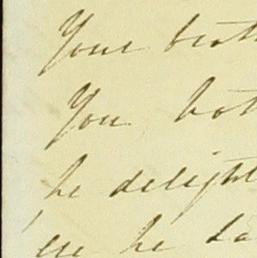 Your broth
You bot
he delight
he